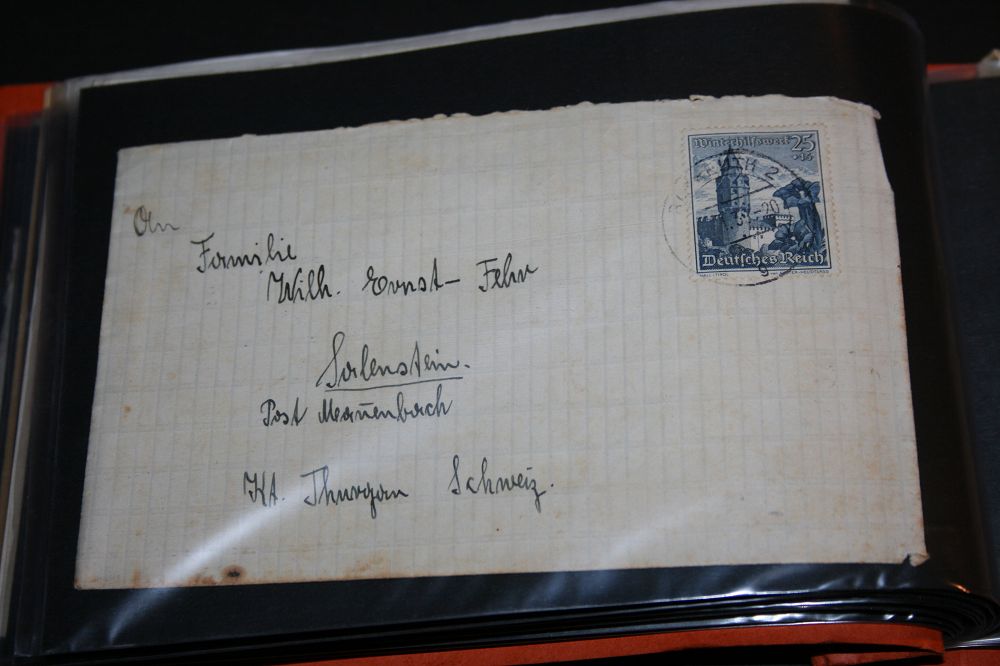 An
Familie
Wilh. Ernst – Fehr
Salenstein.
Post Mannenbach
Kt. Thurgau Schweiz.
Winterhilfswerk 25
+15
Deutsches Reich